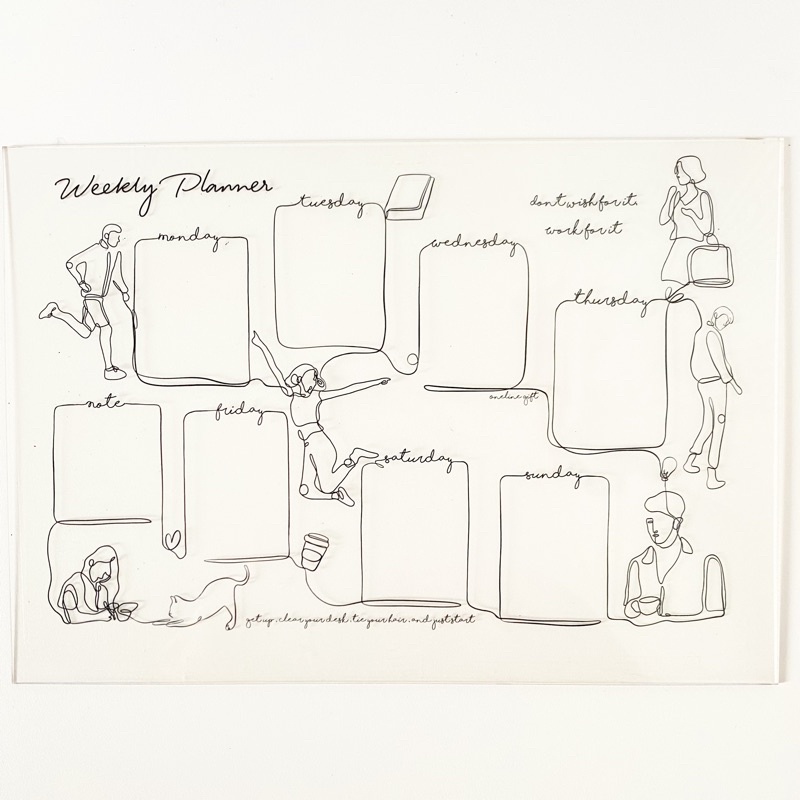 Weekly Planner
monday
tuesday
wednesday
thursday
dont wish for it.
work for it
oneline gift
note
friday
saturday
sunday
get up, clear your desk, tie your hair, and just start